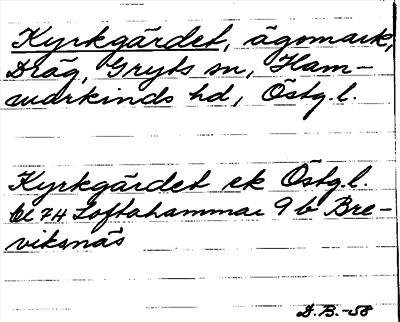 Kyrkgärdet, ägomark,
Dräg, Gryts sn, Ham-
markinds hd, Östg.l.
Kyrkgärdet ek Östg.l.
bl 74 Loftahammar 9 b Bre-
viksnäs
D.B.-58